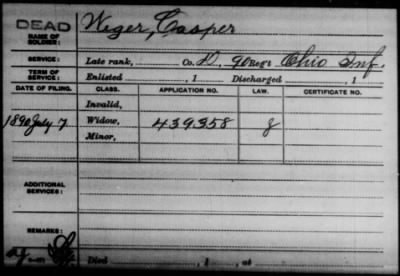 DEAD Weger, Casper
NAME OF SOLDIER:
SERVICE: Late rank, Co. D, 90 Reg't Ohio Inf.
TERM OF SERVICE: Enlisted , 1 Discharged , 1
DATE OF FILING. CLASS. APPLICATION NO. LAW. CERTIFICATE NO.
Invalid,
1890 July 7 Widow, 439358
Minor,
ADDITIONAL SERVICES:
REMARKS:
Died , 1 , at